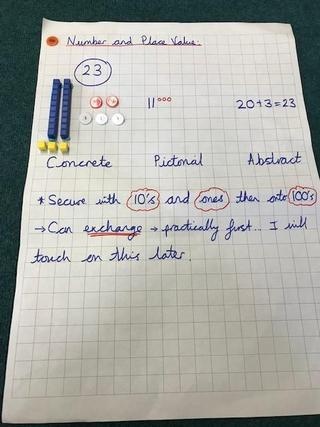 Number and Place Value:
23
11°°° 20+3=23
Concrete Pictorial Abstract
* Secure with 10's and ones then onto 100's
→ Can exchange → practically first... I will
touch on this later.